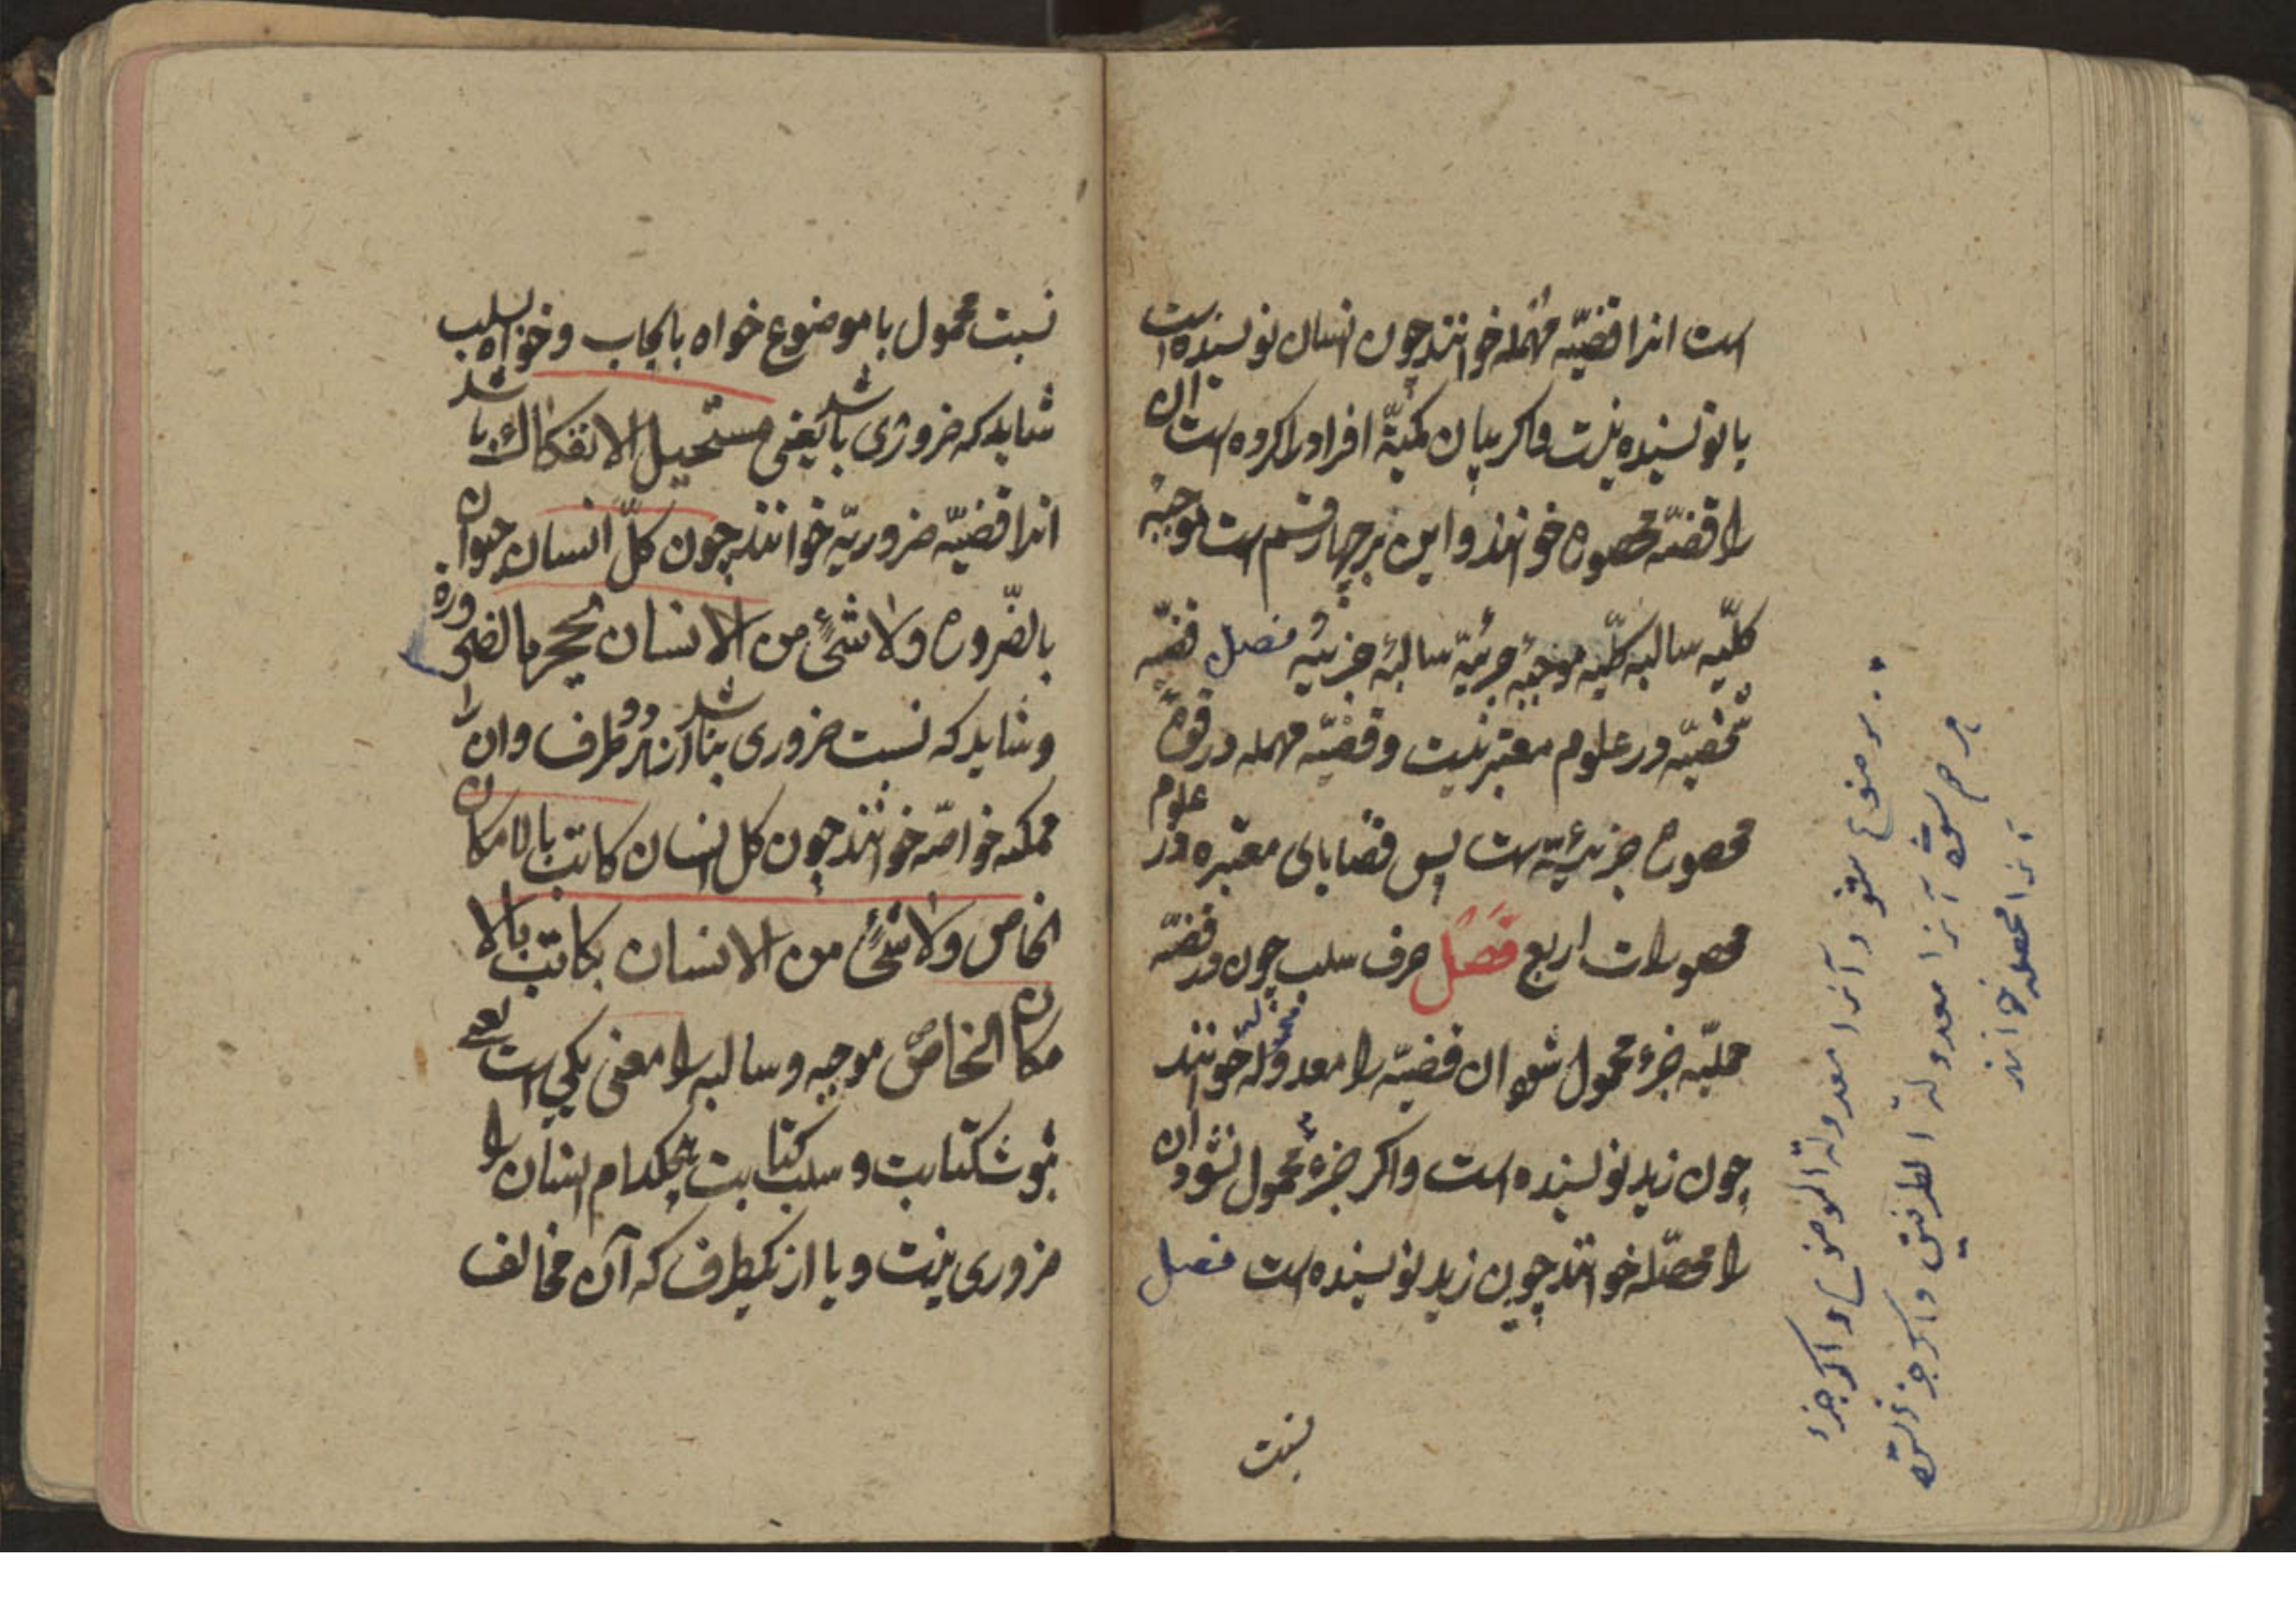 است انرا قضیّه مهمله خوانند چون انسان نویسنده است
یا نویسنده نیست واکر بیان کمیّة افراد را کرده است ان
را قضیّه محصوره خوانند و این بر چهار قسم است موجبه
کلّیه سالبه کلّیه موجبهٔ جزئیّه سالبهٔ جزئیه فصل قضیّه
شخصیّه در علوم معتبر نیست و قضیّه مهمله در قوهٔ
محصوره جزئیّه است پس قضایای معتبره در علوم
محصورات اربع فصل حرف سلب چون در قضیّه
حملیّه جزء محمول شود ان قضیّه را معدوله خوانند
چون زید نویسنده است واکر جزء محمول نشود ان
را محصّله خوانند چون زید نویسنده است فصل
نسبت
موضوع شود آنرا معدولة الموضوع واکر جزء
هر دو شود آنرا معدولة الطرفین واکر جزء نشود
آنرا محصله خوانند
نسبت محمول با موضوع خواه بایجاب و خواه بسلب
شاید که ضروری باشد یعنی مستحیل الانفکاک باشد
انرا قضیّه ضروریّه خوانند چون کلّ انسان حیوان
بالضّروره ولا شیٔ من الانسان بحجر بالضروره
و شاید که نسبت ضروری نباشد از هر دو طرف وان را
ممکنه خواصّه خوانند چون کل انسان کاتب بالامکان
الخاص ولا شیٔ من الانسان بکاتب بالا
مکان الخاصّ موجبه وسالبه را معنی یکی است یعنی
ثبوت کتابت و سلب کتابت هیچکدام انسان را
ضروری نیست و یا از یکطرف که آن مخالف